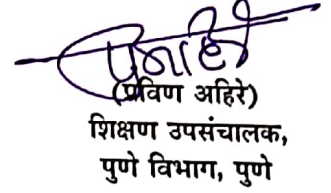 (प्रविण अहिरे)
शिक्षण उपसंचालक,
पुणे विभाग, पुणे